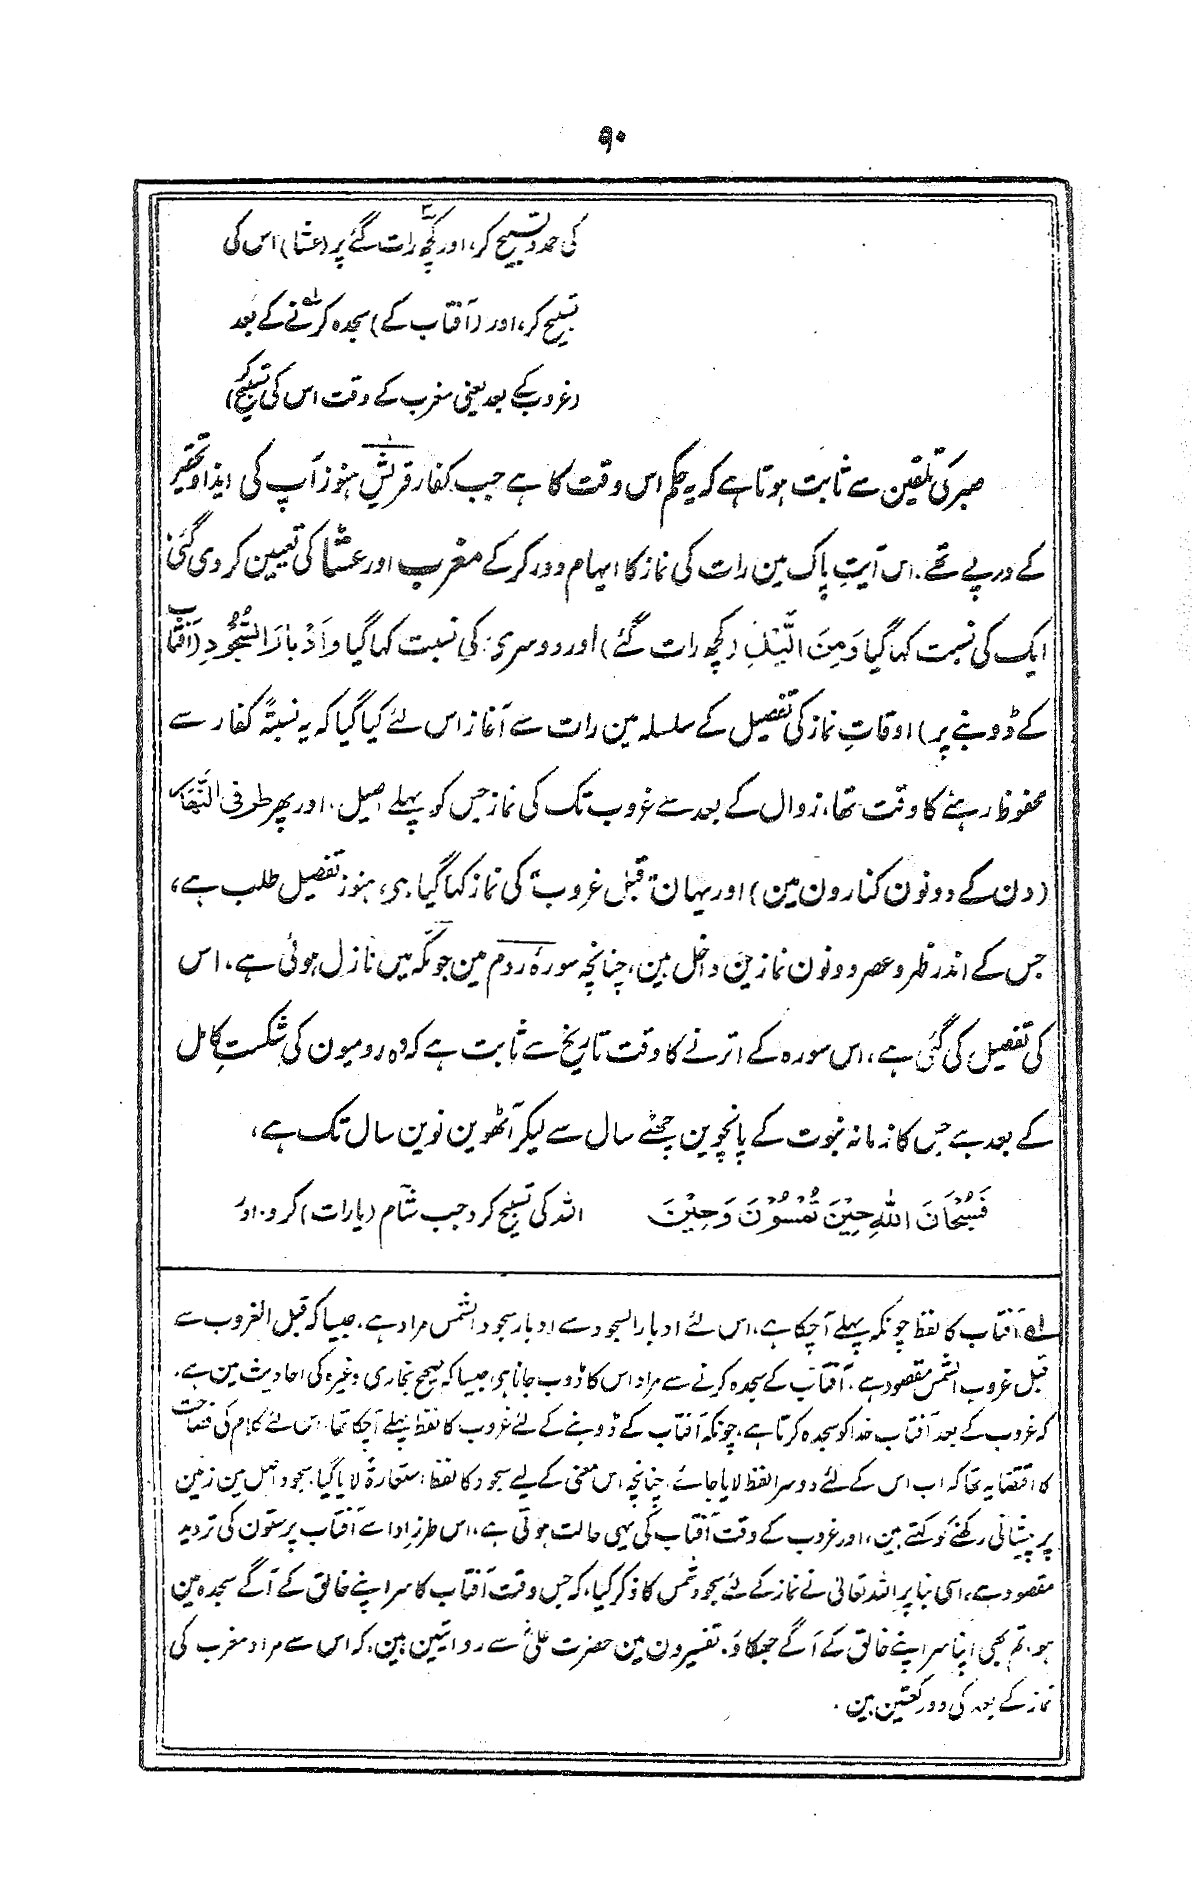 ۹۰
کی حمد و تسبیح کر، اور کچھ رات گئے پر (عشا) اس کی
تسبیح کر، اور (آفتاب کے) سجدہ کرنے کے بعد
(غروب کے بعد یعنی مغرب کے وقت اس کی تسبیح کر)
صبر کی تلقین سے ثابت ہوتا ہے کہ یہ حکم اس وقت کا ہے جب کفار قریش ہنوز آپ کی ایذا و تحقیر
کے درپے تھے۔ اس آیتِ پاک مین رات کی نماز کا ابہام دور کر کے مغرب اور عشا کی تعیین کر دی گئی
ایک کی نسبت کہا گیا وَمِنَ الَّیْلِ (کچھ رات گئے) اور دوسری کی نسبت کہا گیا وَاَدْبَارَ السُّجُوْدِ (آفتاب
کے ڈوبنے پر) اوقاتِ نماز کی تفصیل کے سلسلہ مین رات سے آغاز اس لئے کیا گیا کہ یہ نسبۃً کفار سے
محفوظ رہنے کا وقت تھا، زوال کے بعد سے غروب تک کی نماز جس کو پہلے اصیل، اور پھر طرفی النَّھَار
(دن کے دونون کنارون مین) اور یہان "قبل غروب" کی نماز کہا گیا ہی، ہنوز تفصیل طلب ہے،
جس کے اندر ظہر و عصر دونون نمازین داخل ہین، چنانچہ سورۂ روم مین جو مکہ مین نازل ہوئی ہے، اس
کی تفصیل کی گئی ہے، اس سورہ کے اترنے کا وقت تاریخ سے ثابت ہے کہ وہ رومیون کی شکستِ کامل
کے بعد ہے جس کا زمانہ نبوت کے پانچوین چھٹے سال سے لیکر آٹھوین نوین سال تک ہے،
فَسُبْحَانَ اللّٰهِ حِیْنَ تُمْسُوْنَ وَحِیْنَ اللہ کی تسبیح کرو جب شام (یا رات) کرو، اور
لہ آفتاب کا لفظ چونکہ پہلے آچکا ہے، اس لئے ادبار السجود سے ادبار سجود الشمس مراد ہے، جیسا کہ قبل الغروب سے
قبل غروب الشمس مقصود ہے۔ آفتاب کے سجدہ کرنے سے مراد اس کا ڈوب جانا ہی، جیسا کہ صحیح بخاری وغیرہ کی احادیث مین ہے۔
کہ غروب کے بعد آفتاب خدا کو سجدہ کرتا ہے، چونکہ آفتاب کے ڈوبنے کے لئے غروب کا لفظ پہلے آچکا تھا، اس لئے کلام کی فصاحت
کا اقتضا یہ تھا کہ اب اس کے لئے دوسرا لفظ لایا جائے، چنانچہ اس معنی کے لیے سجود کا لفظ استعارۃً لایا گیا، سجود اصل مین زمین
پر پیشانی رکھنے کو کہتے ہین، اور غروب کے وقت آفتاب کی یہی حالت ہوتی ہے، اس طرزِ ادا سے آفتاب پرستون کی تردید
مقصود ہے، اسی بنا پر اللہ تعالیٰ نے نماز کے لئے سجود شمس کا ذکر کیا، کہ جس وقت آفتاب کا سر اپنے خالق کے آگے سجدہ مین
ہو، تم بھی اپنا سر اپنے خالق کے آگے جھکاؤ، تفسیرون مین حضرت علیؓ سے روایتین ہین، کہ اس سے مراد مغرب کی
نماز کے بعد کی دو رکعتین ہین۔